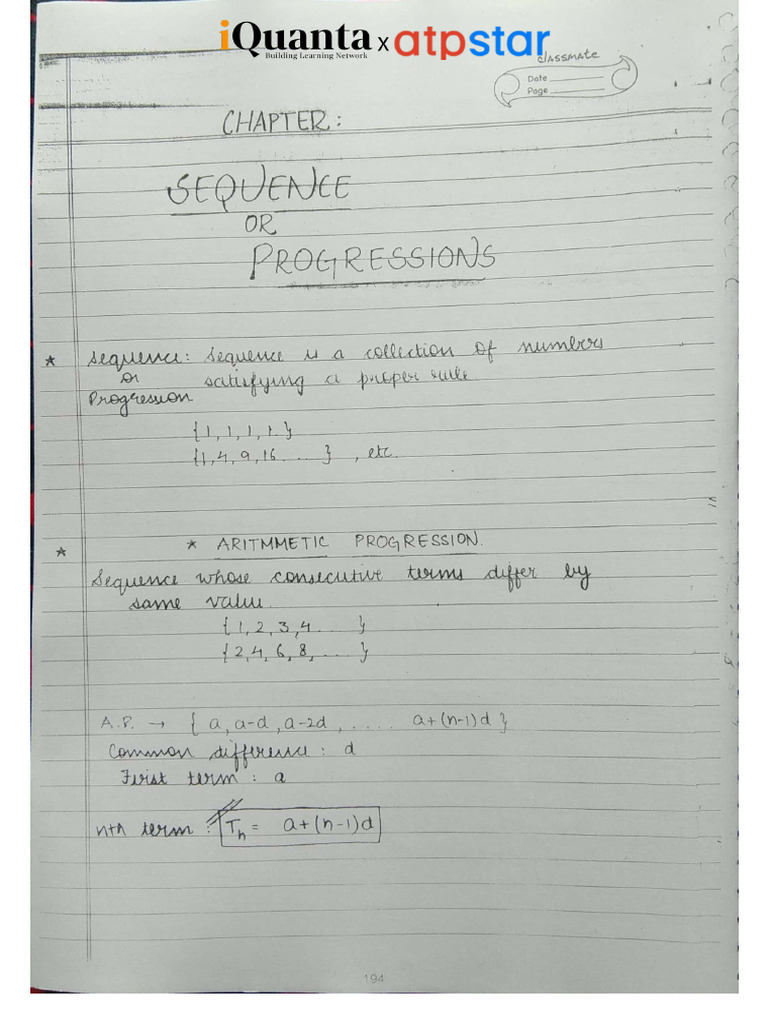 iQuanta x atpstar
Building Learning Network
classmate
Date
Page
CHAPTER:
SEQUENCE
OR
PROGRESSIONS
* Sequence: Sequence is a collection of numbers
or satisfying a proper rule
Progression
{1, 1, 1, 1.}
{1, 4, 9, 16 .... } , etc.
* * ARITMMETIC PROGRESSION.
Sequence whose consecutive terms differ by
same value.
{1, 2, 3, 4... }
{2, 4, 6, 8, .... }
A.P. → { a, a-d, a-2d, ..... a+(n-1)d }
Common difference : d
First term : a
nth term : Tn = a+(n-1)d
194